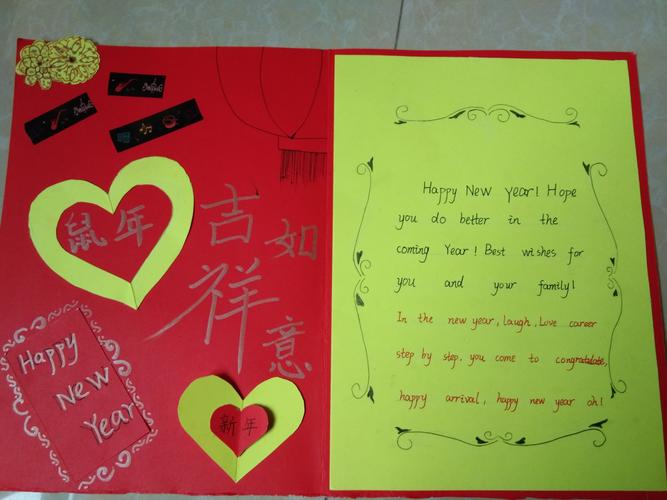 鼠年
吉祥如意
Happy
New
Year
新年
Happy New Year! Hope
you do better in the
coming Year! Best wishes for
you and your family!
In the new year, laugh, Love career
step by step, you come to congratulate,
happy arrival, happy new year oh!